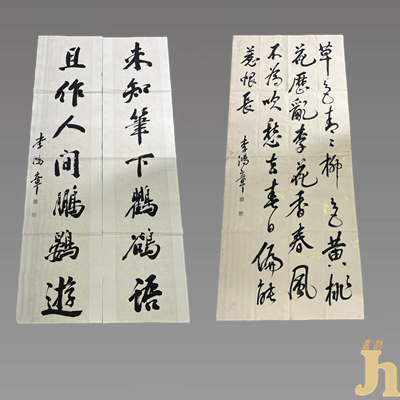 未知筆下鸜鵒語
且作人間鵬鷃遊
李鴻章
草色青々柳色黃桃
花歷亂李花香春風
不為吹愁去春日偏能
惹恨長
李鴻章
Jh